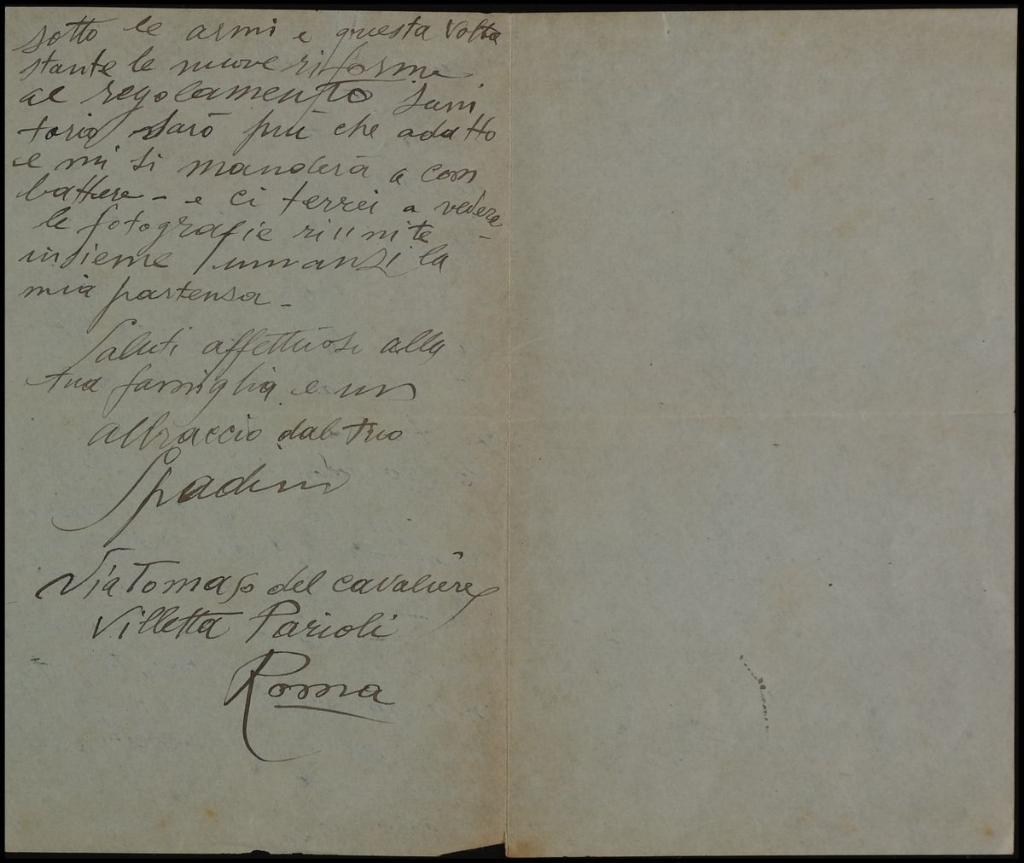 sotto le armi e questa volta
stante le nuove riforme
al regolamento sani
tario sarò più che adatto
e mi si manderà a com
battere - e ci terrei a vedere
le fotografie riunite -
insieme innanzi la
mia partenza -
Saluti affettuosi alla
tua famiglia e un
abbraccio dal tuo
Spadini
Via Tomaso del cavaliere
Villetta Parioli
Roma